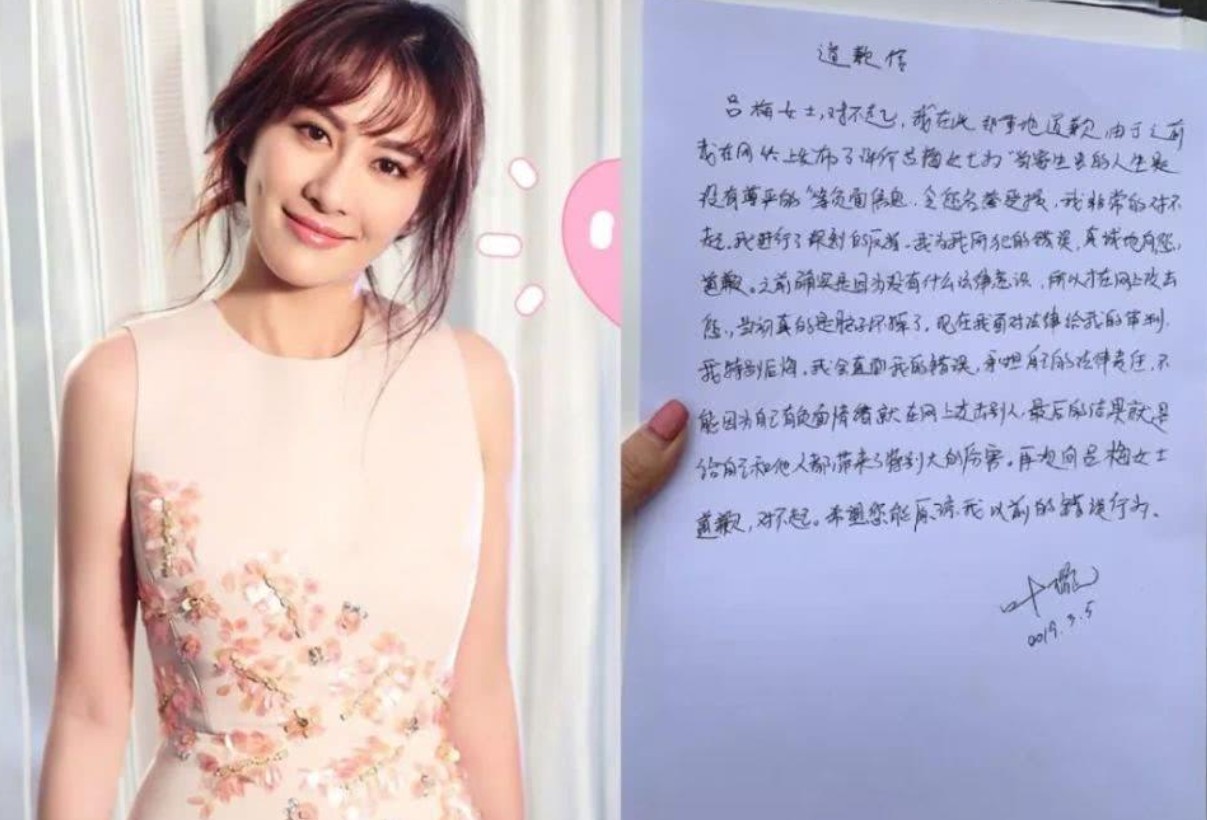 道歉信
吕梅女士,对不起,我在此郑重地道歉,由于之前
我在网络上发布了评价吕梅女士为“当寄生虫的人生是
没有尊严的”等负面信息,令您名誉受损,我非常的对不
起,我进行了深刻的反省。我为我所犯的错误,真诚地向您,
道歉。之前确实是因为没有什么法律意识,所以才在网上攻击
您,当初真的是脑子坏掉了。现在我面对法律给我的审判,
我特别后悔,我会直面我的错误,承担自己的法律责任,不
能因为自己有负面情绪就在网上攻击别人,最后的结果就是
给自己和他人都带来了特别大的厉害。再次向吕梅女士
道歉,对不起。希望您能原谅我以前的错误行为。
2019.3.5